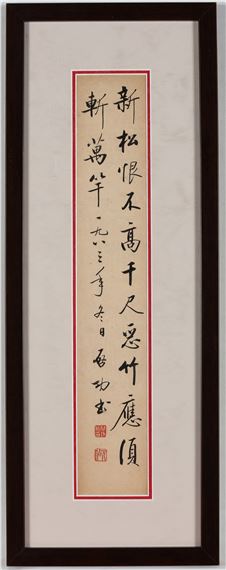 新松恨不高千尺惡竹應須
斬萬竿一九八三年冬日启功书